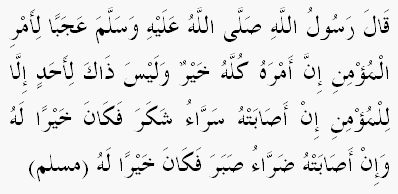 قَالَ رَسُولُ اللَّهِ صَلَّى اللَّهُ عَلَيْهِ وَسَلَّمَ عَجَبًا لِأَمْرِ
الْمُؤْمِنِ إِنَّ أَمْرَهُ كُلَّهُ خَيْرٌ وَلَيْسَ ذَاكَ لِأَحَدٍ إِلَّا
لِلْمُؤْمِنِ إِنْ أَصَابَتْهُ سَرَّاءُ شَكَرَ فَكَانَ خَيْرًا لَهُ
وَإِنْ أَصَابَتْهُ ضَرَّاءُ صَبَرَ فَكَانَ خَيْرًا لَهُ (مسلم)